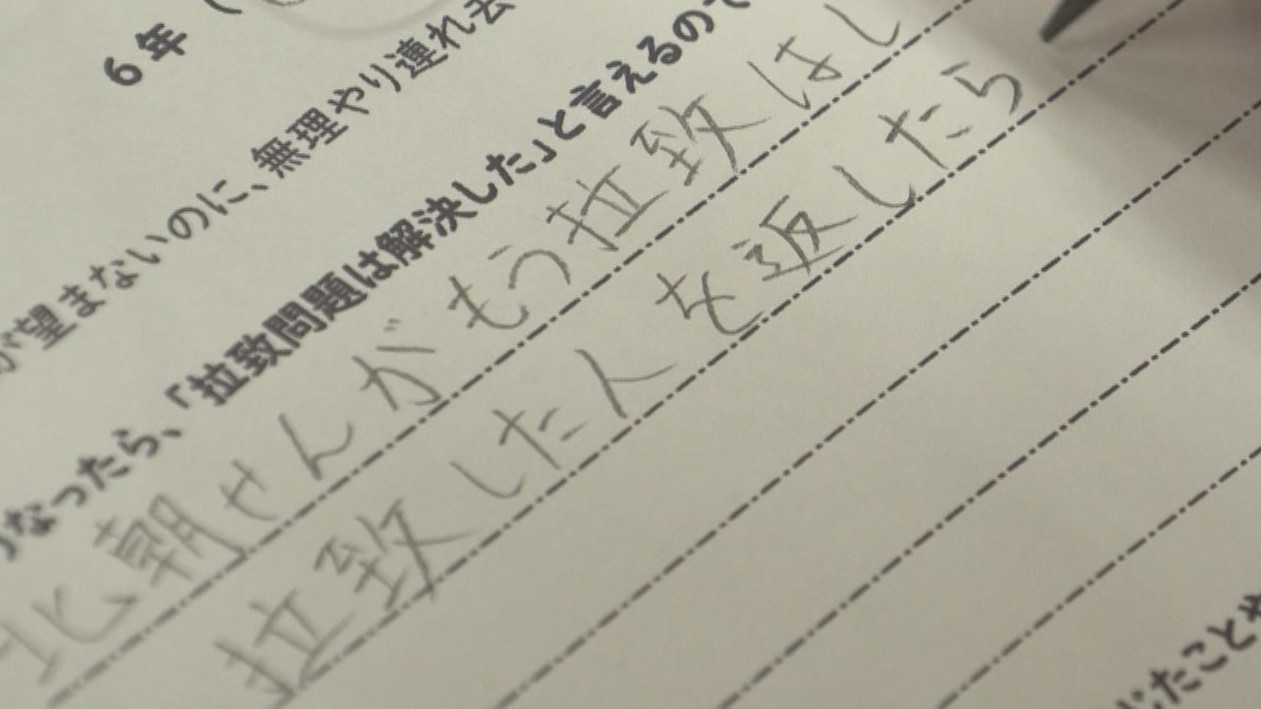 6年(
が望まないのに、無理やり連れ去
なったら、「拉致問題は解決した」と言えるので
北朝せんがもう拉致はし
拉致した人を返したら
じたことや